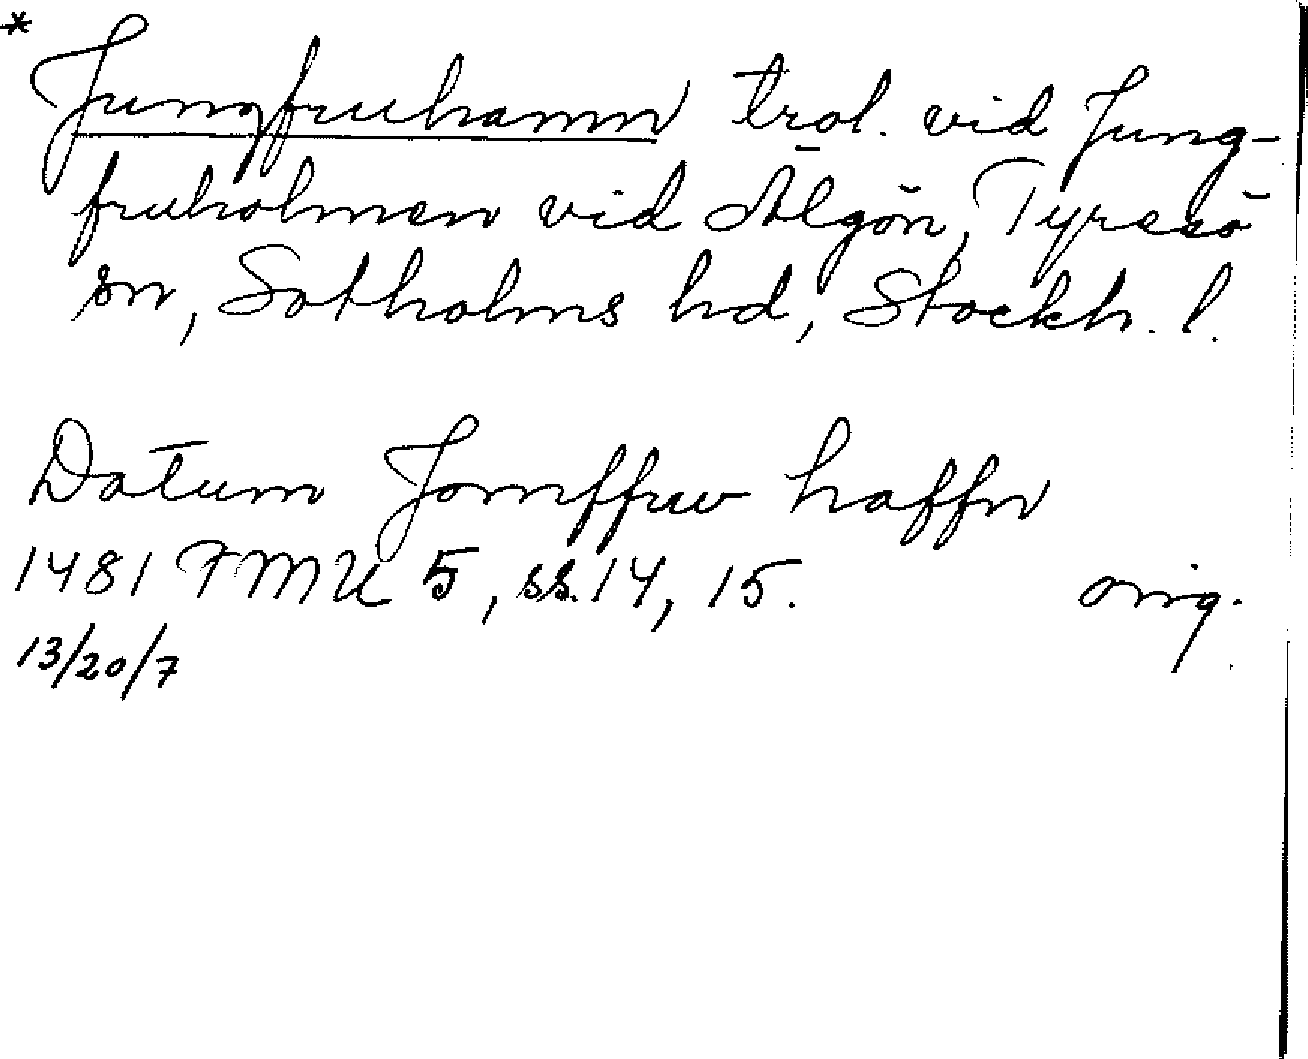 * Jungfruhamn trol. vid Jung-
fruholmen vid Älgön, Tyresö
sn, Sotholms hd, Stockh. l.
Datum Jomffrw haffn
1481 FMU 5, ss. 14, 15. orig.
13/20/7